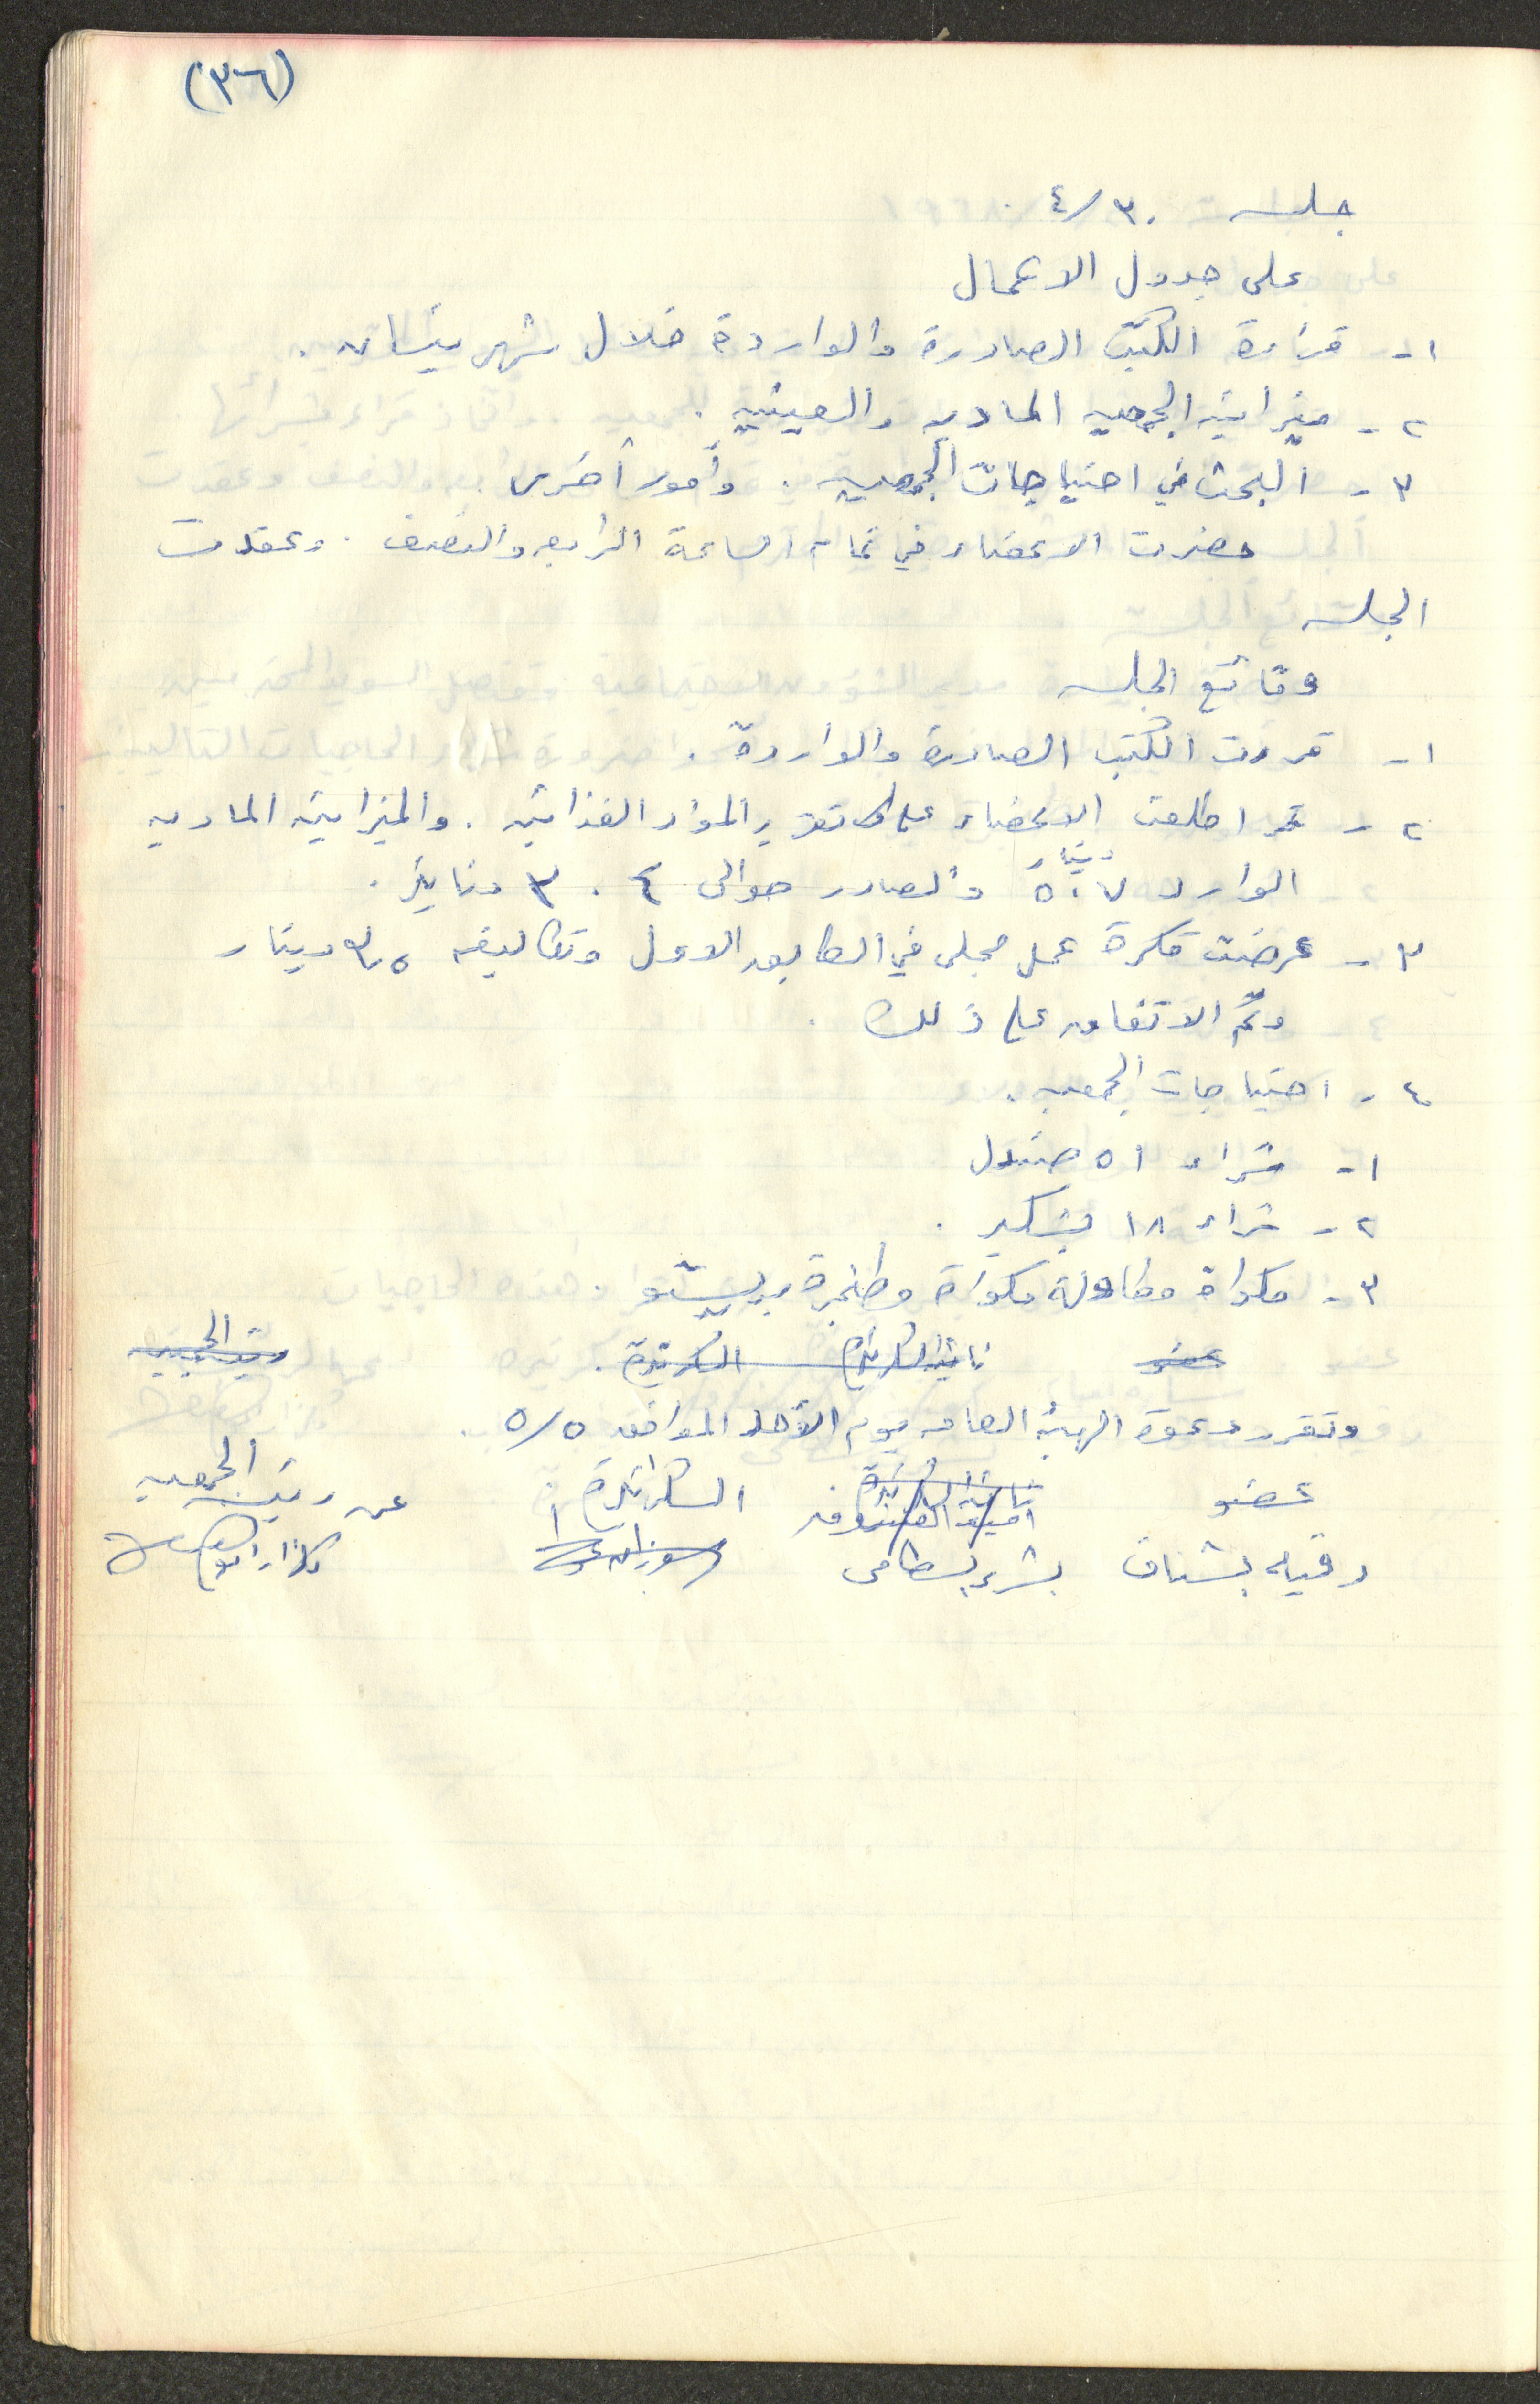 (٣٦)
جلسه ٣٠/٤
على جدول الاعمال
١- قراءة الكتب الصادرة والواردة خلال شهر نيسان.
٢- ميزانية الجمعيه الماديه والعينيه.
٣- البحث في احتياجات الجمعيه. وأمور أخرى
حضرت الاعضاء في تمام الساعة الرابعه والنصف. وعقدت
الجلسه
وقائع الجلسه
١- قرءت الكتب الصادرة والواردة.
٢- اطلعت الاعضاء على تقرير المواد الغذائيه. والميزانيه الماديه
الوارد ٥٠٧ دينار والصادر حوالى ٣٠٤ دنانير.
٣- عرضت فكرة عمل مجلى في الطابق الاول وتكاليفه دينار
وتم الاتفاق على ذلك.
٤- احتياجات الجمعيه.
١- شراء ٥١ صندل
٢- شراء ١٨ بشكير.
٣- مكواة وطاولة مكواة وطنجرة بريستو.
عضو نائبة السكرتيرة السكرتيرة. رئيسة الجمعيه
وتقرر دعوة الهيئة العامه يوم الأحد الموافق ٥/٥.
عضو أمينة الصندوق السكرتيرة عن رئيسة الجمعيه
رقيه بشناق بشرى بسطامى